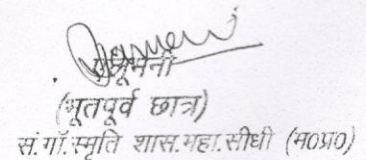 (भूतपूर्व छात्र)
सं.गॉ.स्मृति शास.महा.सीधी (म०प्र०)